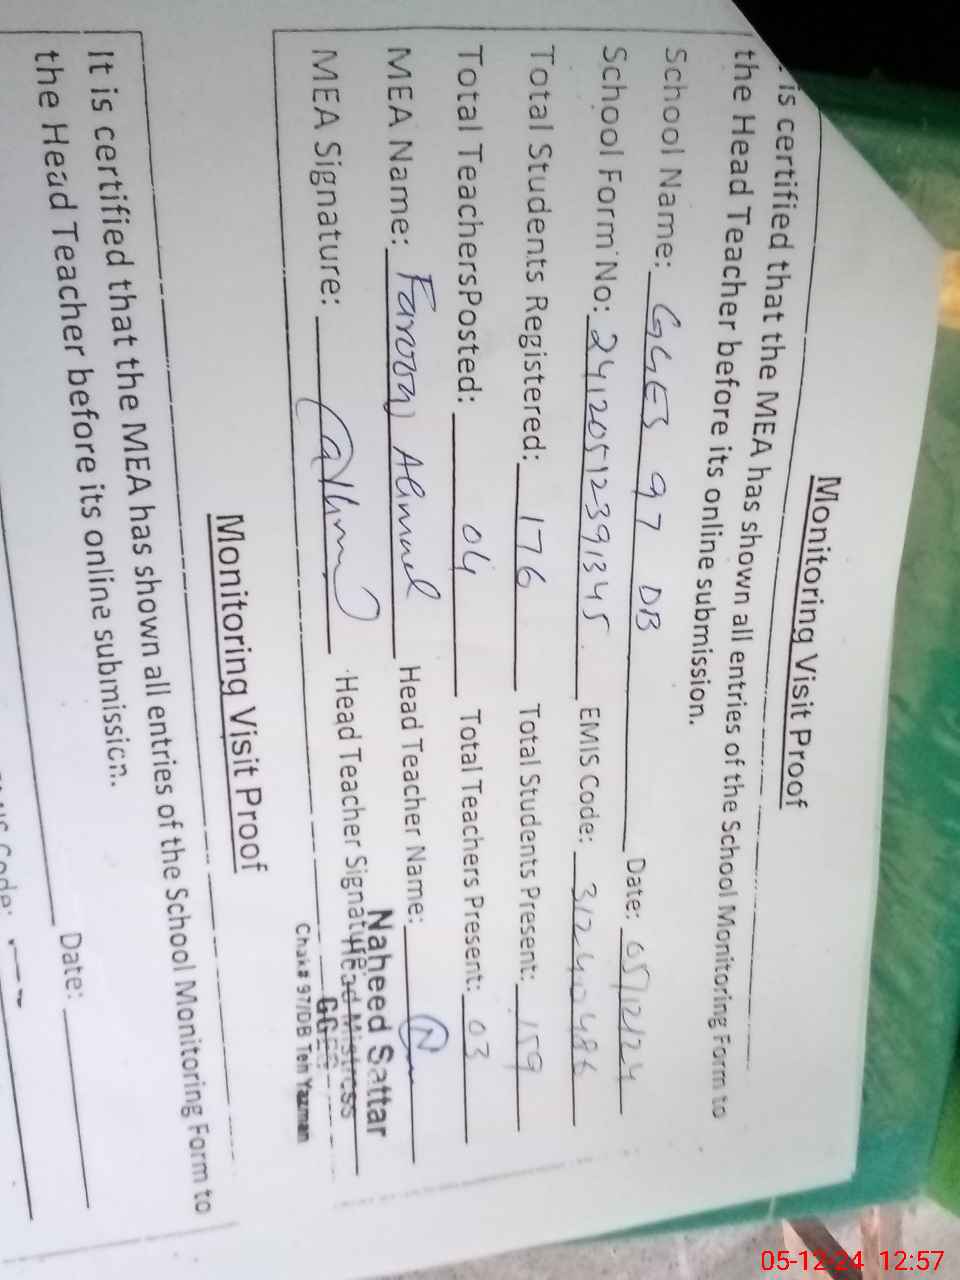 Monitoring Visit Proof
is certified that the MEA has shown all entries of the School Monitoring Form to
the Head Teacher before its online submission.
School Name: GGES 97 DB Date: 05/12/24
School Form No: 24120512391345 EMIS Code: 31240486
Total Students Registered: 176 Total Students Present: 159
Total TeachersPosted: 04 Total Teachers Present: 03
MEA Name: Farooq Ahmad Head Teacher Name:
MEA Signature: Head Teacher Signature:
Naheed Sattar
Head Mistress
GGES
Chak# 97/DB Teh Yazman
Monitoring Visit Proof
It is certified that the MEA has shown all entries of the School Monitoring Form to
the Head Teacher before its online submission.
Date:
Code:
05-12-24 12:57